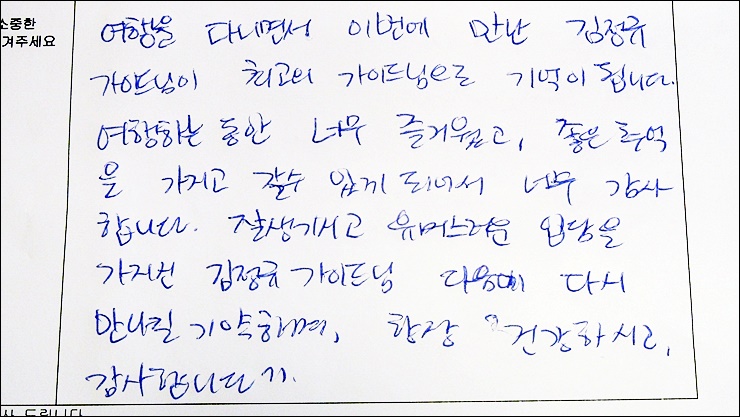 소중한
겨주세요
여행을 다니면서 이번에 만난 김정규
가이드님이 최고의 가이드님으로 기억이 됩니다.
여행하는 동안 너무 즐거웠고, 좋은 추억
을 가지고 갈수 있게 되어서 너무 감사
합니다. 잘생기시고 유머스러운 입담을
가지신 김정규 가이드님 다음에 다시
만나길 기약하며, 항상 건강하시고,
감사합니다